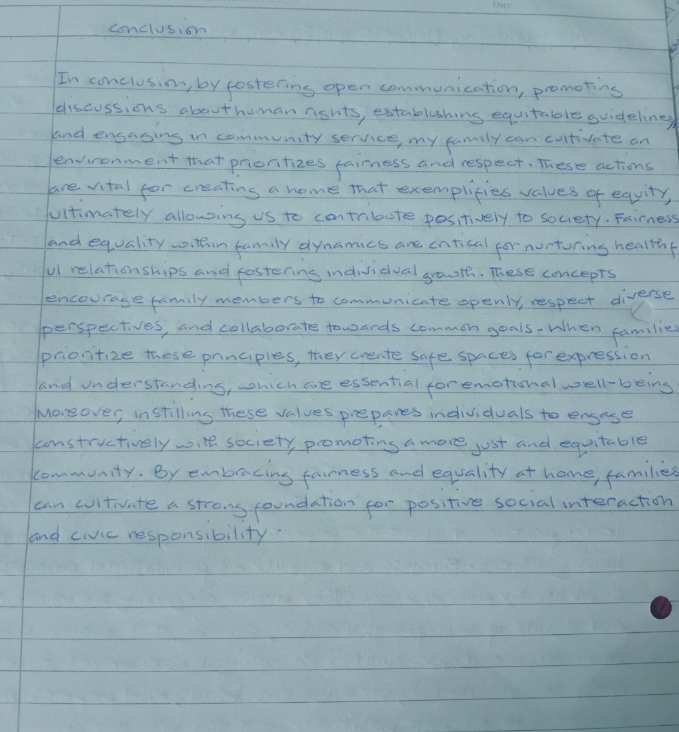 Date
conclusion
In conclusion, by fostering open communication, promoting
discussions about human rights, establishing equitable guidelines,
and engaging in community service, my family can cultivate an
environment that prioritizes fairness and respect. These actions
are vital for creating a home that exemplifies values of equity,
ultimately allowing us to contribute positively to society. Fairness
and equality within family dynamics are critical for nurturing healthf
ul relationships and fostering individual growth. These concepts
encourage family members to communicate openly, respect diverse
perspectives, and collaborate towards common goals. When families
prioritize these principles, they create safe spaces for expression
and understanding, which are essential for emotional well-being
Moreover, instilling these values prepares individuals to engage
constructively with society, promoting a more just and equitable
community. By embracing fairness and equality at home, families
can cultivate a strong foundation for positive social interaction
and civic responsibility.